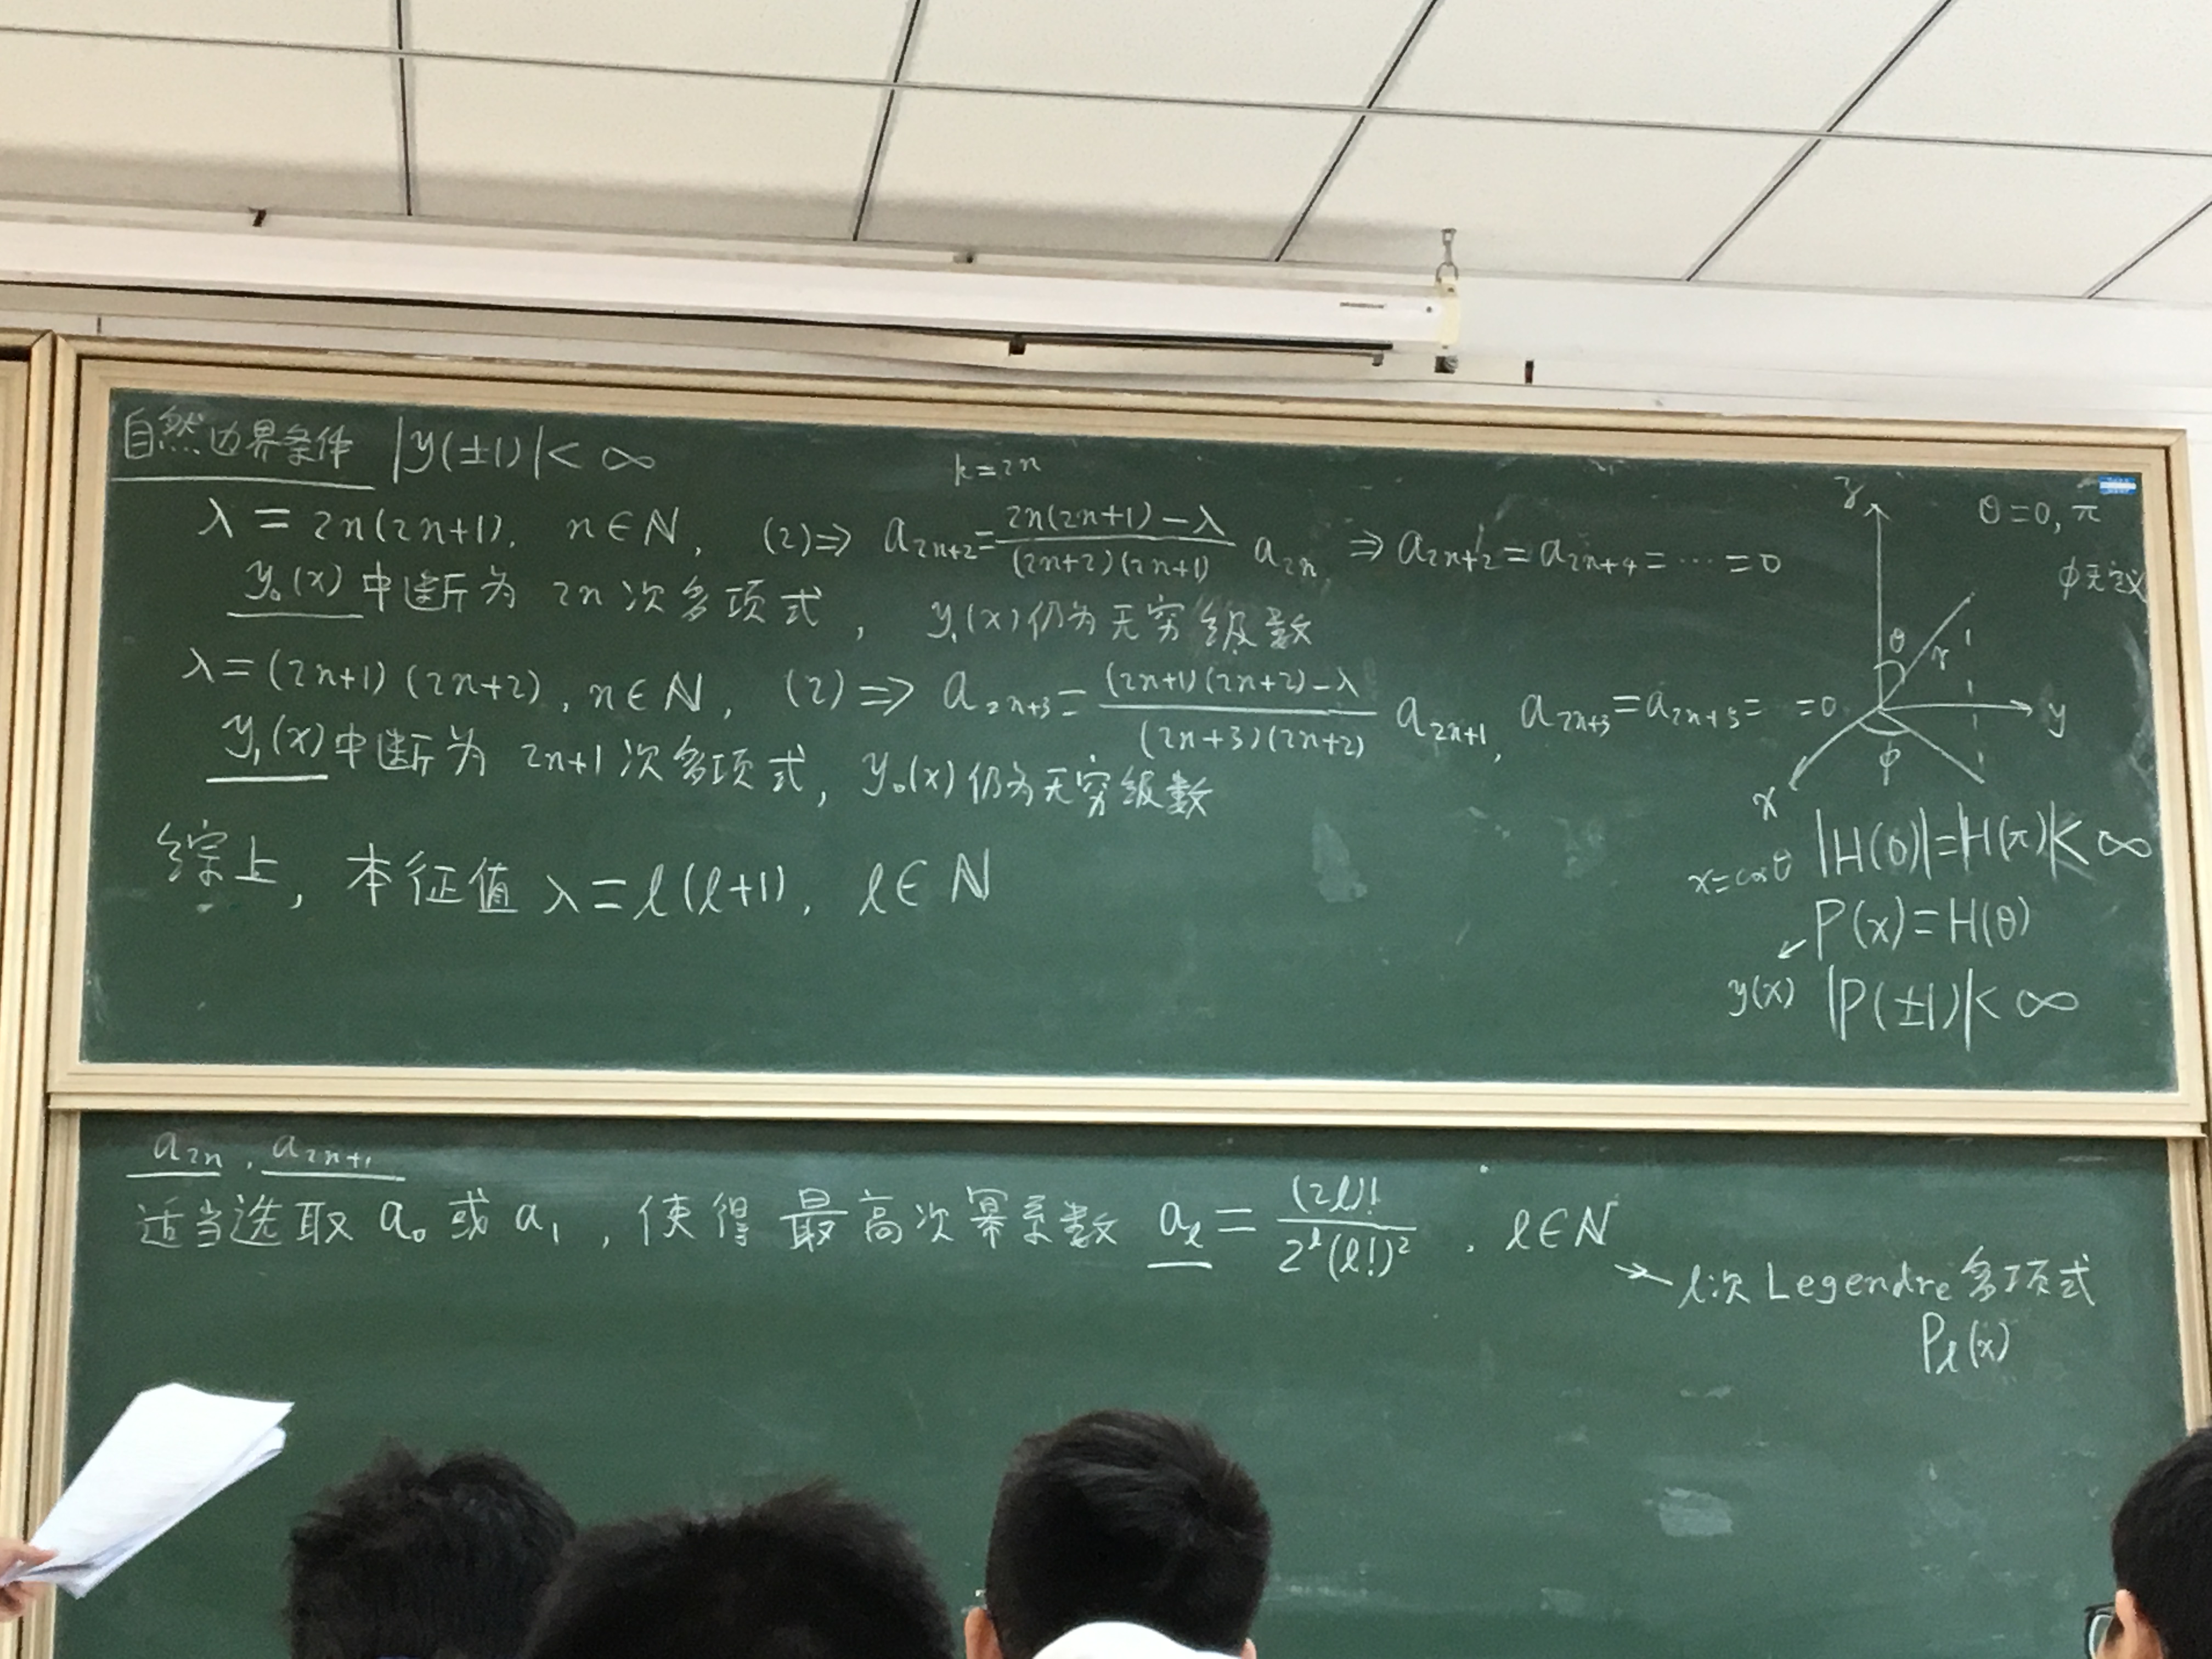 自然边界条件 |y(±1)|<∞
k=2n
λ=2n(2n+1), n∈N, (2)⇒ a_{2n+2}=\frac{2n(2n+1)-λ}{(2n+2)(2n+1)} a_{2n} ⇒ a_{2n+2}=a_{2n+4}=⋯=0
y₀(x)中断为 2n 次多项式, y₁(x)仍为无穷级数
λ=(2n+1)(2n+2), n∈N, (2)⇒ a_{2n+3}=\frac{(2n+1)(2n+2)-λ}{(2n+3)(2n+2)} a_{2n+1}, a_{2n+3}=a_{2n+5}=⋯=0
y₁(x)中断为 2n+1 次多项式, y₀(x)仍为无穷级数
综上, 本征值 λ=ℓ(ℓ+1), ℓ∈N
z
θ=0, π
φ无定义
θ
r
y
φ
x
|H(0)|=|H(π)|<∞
x=cosθ
P(x)=H(θ)
y(x) |P(±1)|<∞
a_{2n}, a_{2n+1}
适当选取 a₀ 或 a₁, 使得 最高次幂系数 a_ℓ=\frac{(2ℓ)!}{2^ℓ(ℓ!)²}, ℓ∈N
→ ℓ次 Legendre 多项式
P_ℓ(x)